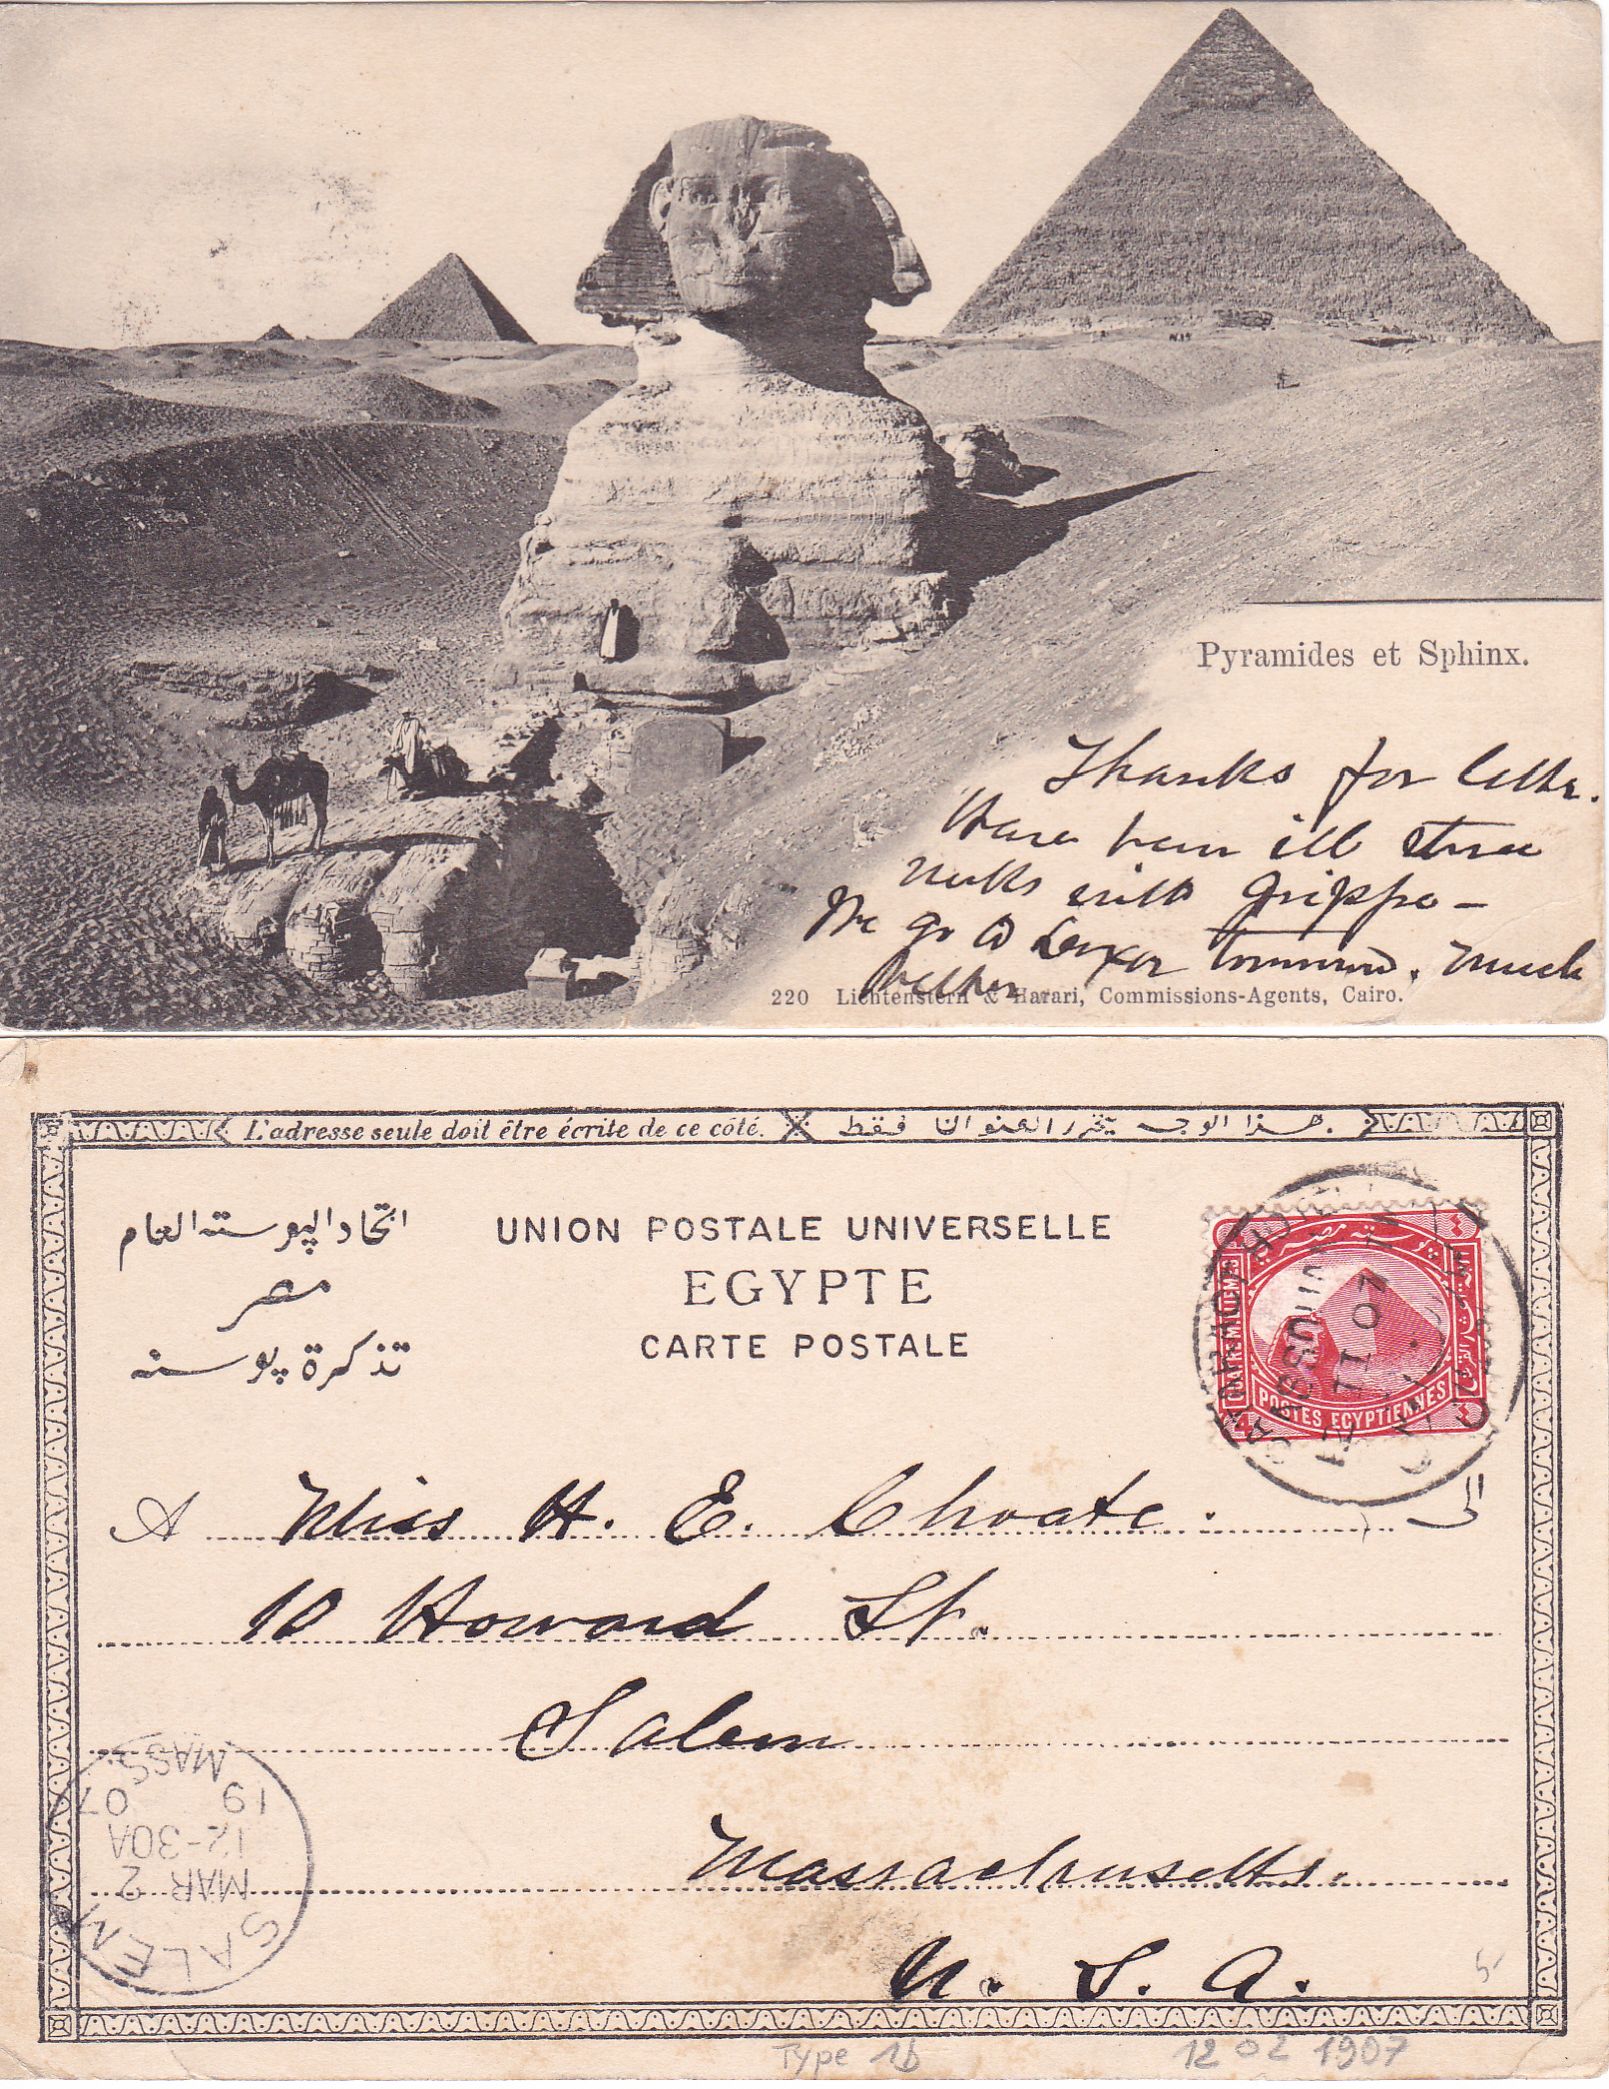 Pyramides et Sphinx.
Thanks for letter.
Have been ill three
weeks with Grippe —
We go to Luxor tomorrow. Much
better
220 Lichtenstern & Harari, Commissions-Agents, Cairo.
L'adresse seule doit être écrite de ce côté. هذا الوجه يحرر العنوان فقط.
اتحاد البوسته العام
مصر
تذكرة بوسته
UNION POSTALE UNIVERSELLE
EGYPTE
CARTE POSTALE
بوستة مصرية
POSTES EGYPTIENNES
II 07
A Miss H. E. Choate. الى
10 Howard St.
Salem
Massachusetts.
U. S. A.
SALEM
MAR 2
12-30A
19 07
MASS.
5-
Type 1b
12 02 1907